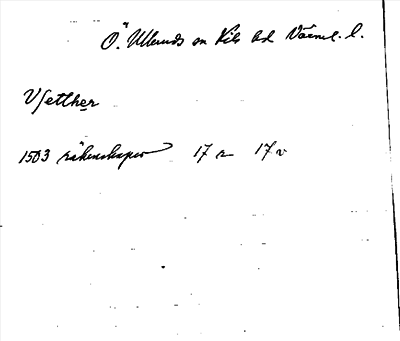 Ö. Ulleruds sn Kils hd Värml. l.
Vsetther
1503 räkenskaper 17 r 17 v